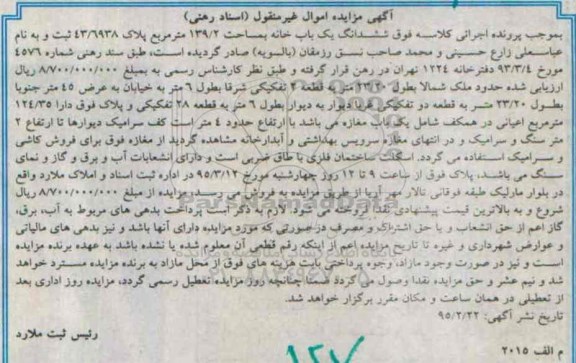 آگهی مزایده اموال غیرمنقول (اسناد رهنی)
بموجب پرونده اجرائی کلاسه فوق ششدانگ یک باب خانه بمساحت ۱۳۹/۲ مترمربع پلاک ۴۳/۶۹۳۸ ثبت و به نام
عباسعلی زارع حسینی و محمد صاحب نسق رزمقان (بالسویه) صادر گردیده است، طبق سند رهنی شماره ۴۵۷۶
مورخ ۹۳/۳/۴ دفترخانه ۱۲۲۴ تهران در رهن قرار گرفته و طبق نظر کارشناس رسمی به مبلغ ۸/۷۰۰/۰۰۰/۰۰۰ ریال
ارزیابی شده حدود ملک شمالا بطول ۲۳/۲۰ متر به قطعه ۴ تفکیکی شرقا بطول ۶ متر به خیابان به عرض ۴۵ متر جنوبا
بطول ۲۳/۲۰ متر به قطعه دو تفکیکی غربا دیوار به دیوار بطول ۶ متر به قطعه ۲۸ تفکیکی و پلاک فوق دارا ۱۲۴/۳۵
مترمربع اعیانی در همکف شامل یک باب مغازه می باشد با ارتفاع حدود ۴ متر است کف سرامیک دیوارها تا ارتفاع ۲
متر سنگ و سرامیک و در انتهای مغازه سرویس بهداشتی و آبدارخانه مشاهده گردید از مغازه فوق برای فروش کاشی
و سرامیک استفاده می گردد. اسکلت ساختمان فلزی با طاق ضربی است و دارای انشعابات آب و برق و گاز و نمای
سنگ می باشد، پلاک فوق از ساعت ۹ تا ۱۲ روز چهارشنبه مورخ ۹۵/۳/۱۲ در اداره ثبت اسناد و املاک ملارد واقع
در بلوار مارلیک طبقه فوقانی تالار مهر آریا از طریق مزایده به فروش می رسد مزایده از مبلغ ۸/۷۰۰/۰۰۰/۰۰۰ ریال
شروع و به بالاترین قیمت پیشنهادی نقدا فروخته می شود. لازم به ذکر است پرداخت بدهی های مربوط به آب، برق،
گاز اعم از حق انشعاب و یا حق اشتراک و مصرف در صورتی که مورد مزایده دارای آنها باشد و نیز بدهی های مالیاتی
و عوارض شهرداری و غیره تا تاریخ مزایده اعم از اینکه رقم قطعی آن معلوم شده یا نشده باشد به عهده برنده مزایده
است و نیز در صورت وجود مازاد، وجوه پرداختی بابت هزینه های فوق از محل مازاد به برنده مزایده مسترد خواهد
شد و نیم عشر و حق مزایده نقدا وصول می گردد ضمنا چنانچه روز مزایده تعطیل رسمی گردد، مزایده روز اداری بعد
از تعطیلی در همان ساعت و مکان مقرر برگزار خواهد شد.
تاریخ نشر آگهی: ۹۵/۲/۲۲
رئیس ثبت ملارد
م الف ۲۰۱۵
۱۲۷